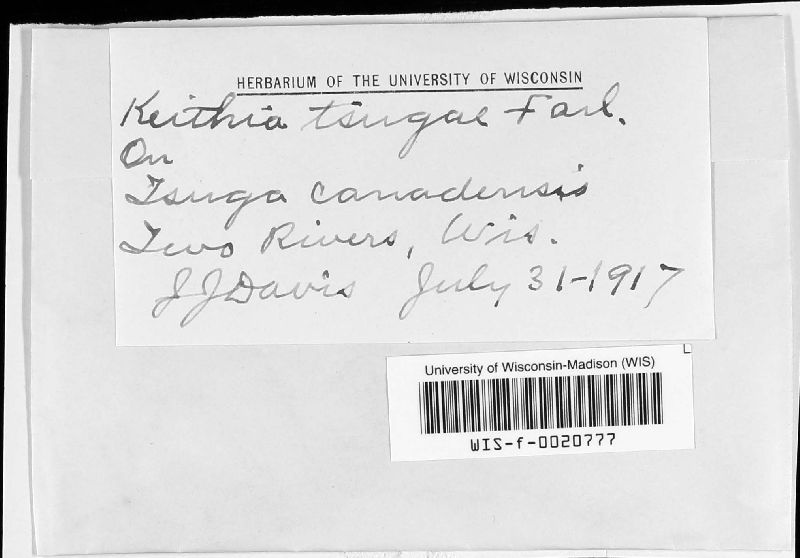 HERBARIUM OF THE UNIVERSITY OF WISCONSIN
Keithia tsugae Farl.
On
Tsuga canadensis
Two Rivers, Wis.
JJDavis July 31-1917
University of Wisconsin-Madison (WIS)
WIS-f-0020777